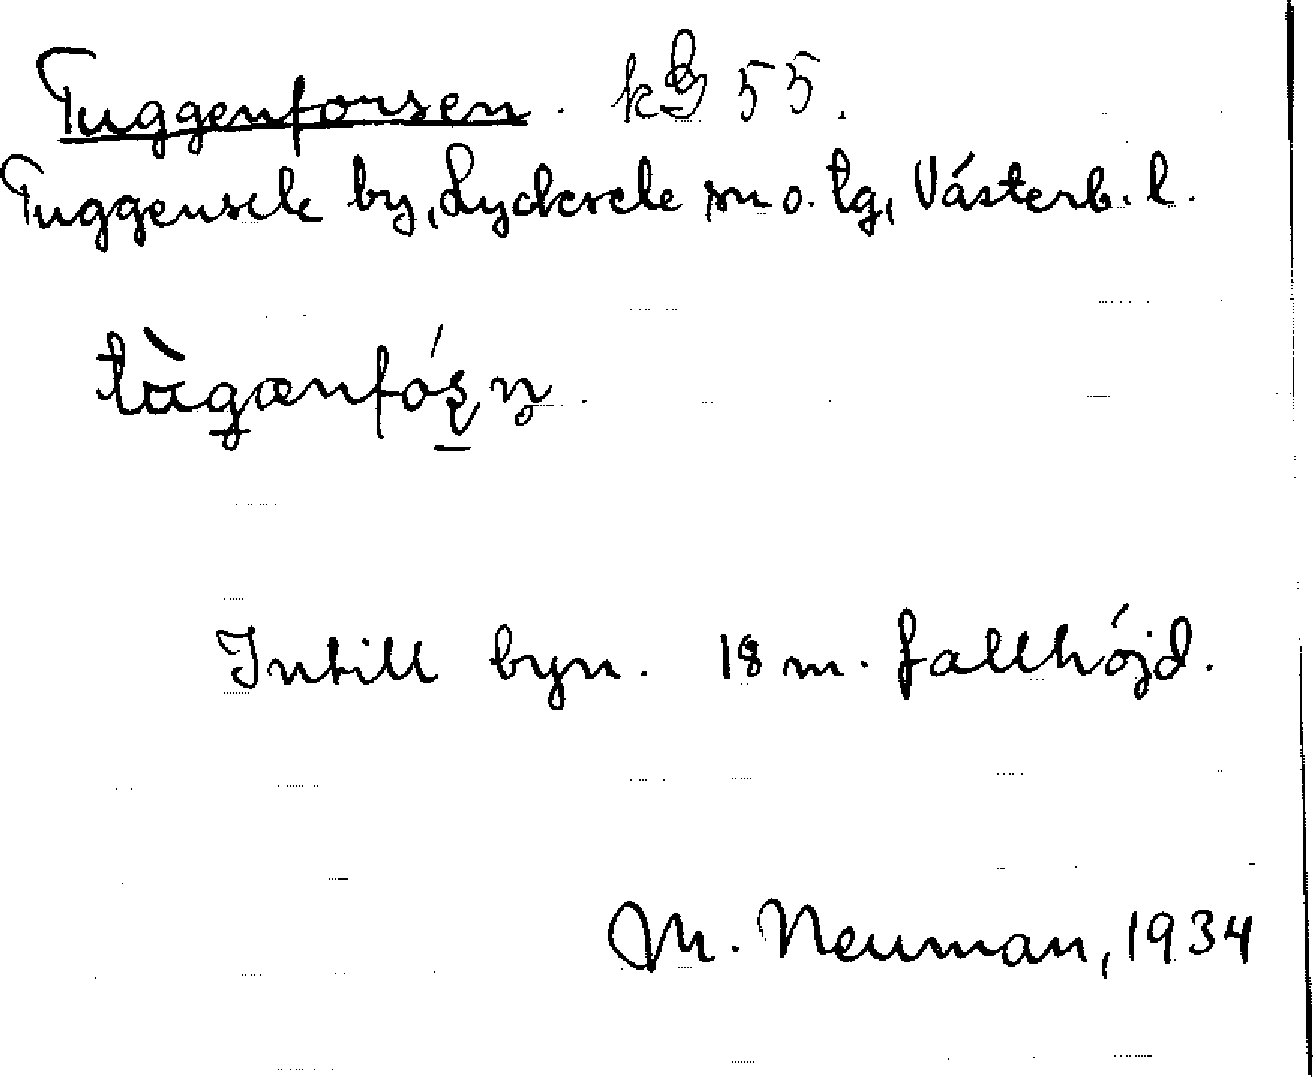 Tuggenforsen. kB 55.
Tuggensele by, Lycksele sn o. lg, Västerb. l.
Intill byn. 18 m. fallhöjd.
M. Neuman, 1934